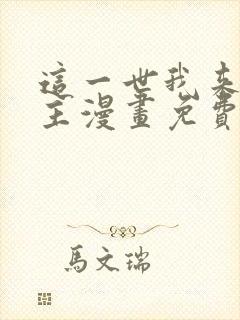 這一世我來
主漫畫免費
馬文瑞